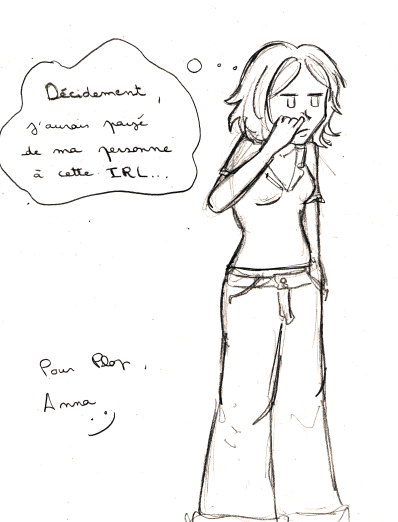 Décidement,
j'aurais payé
de ma personne
à cette IRL...
Pour Plop,
Anna